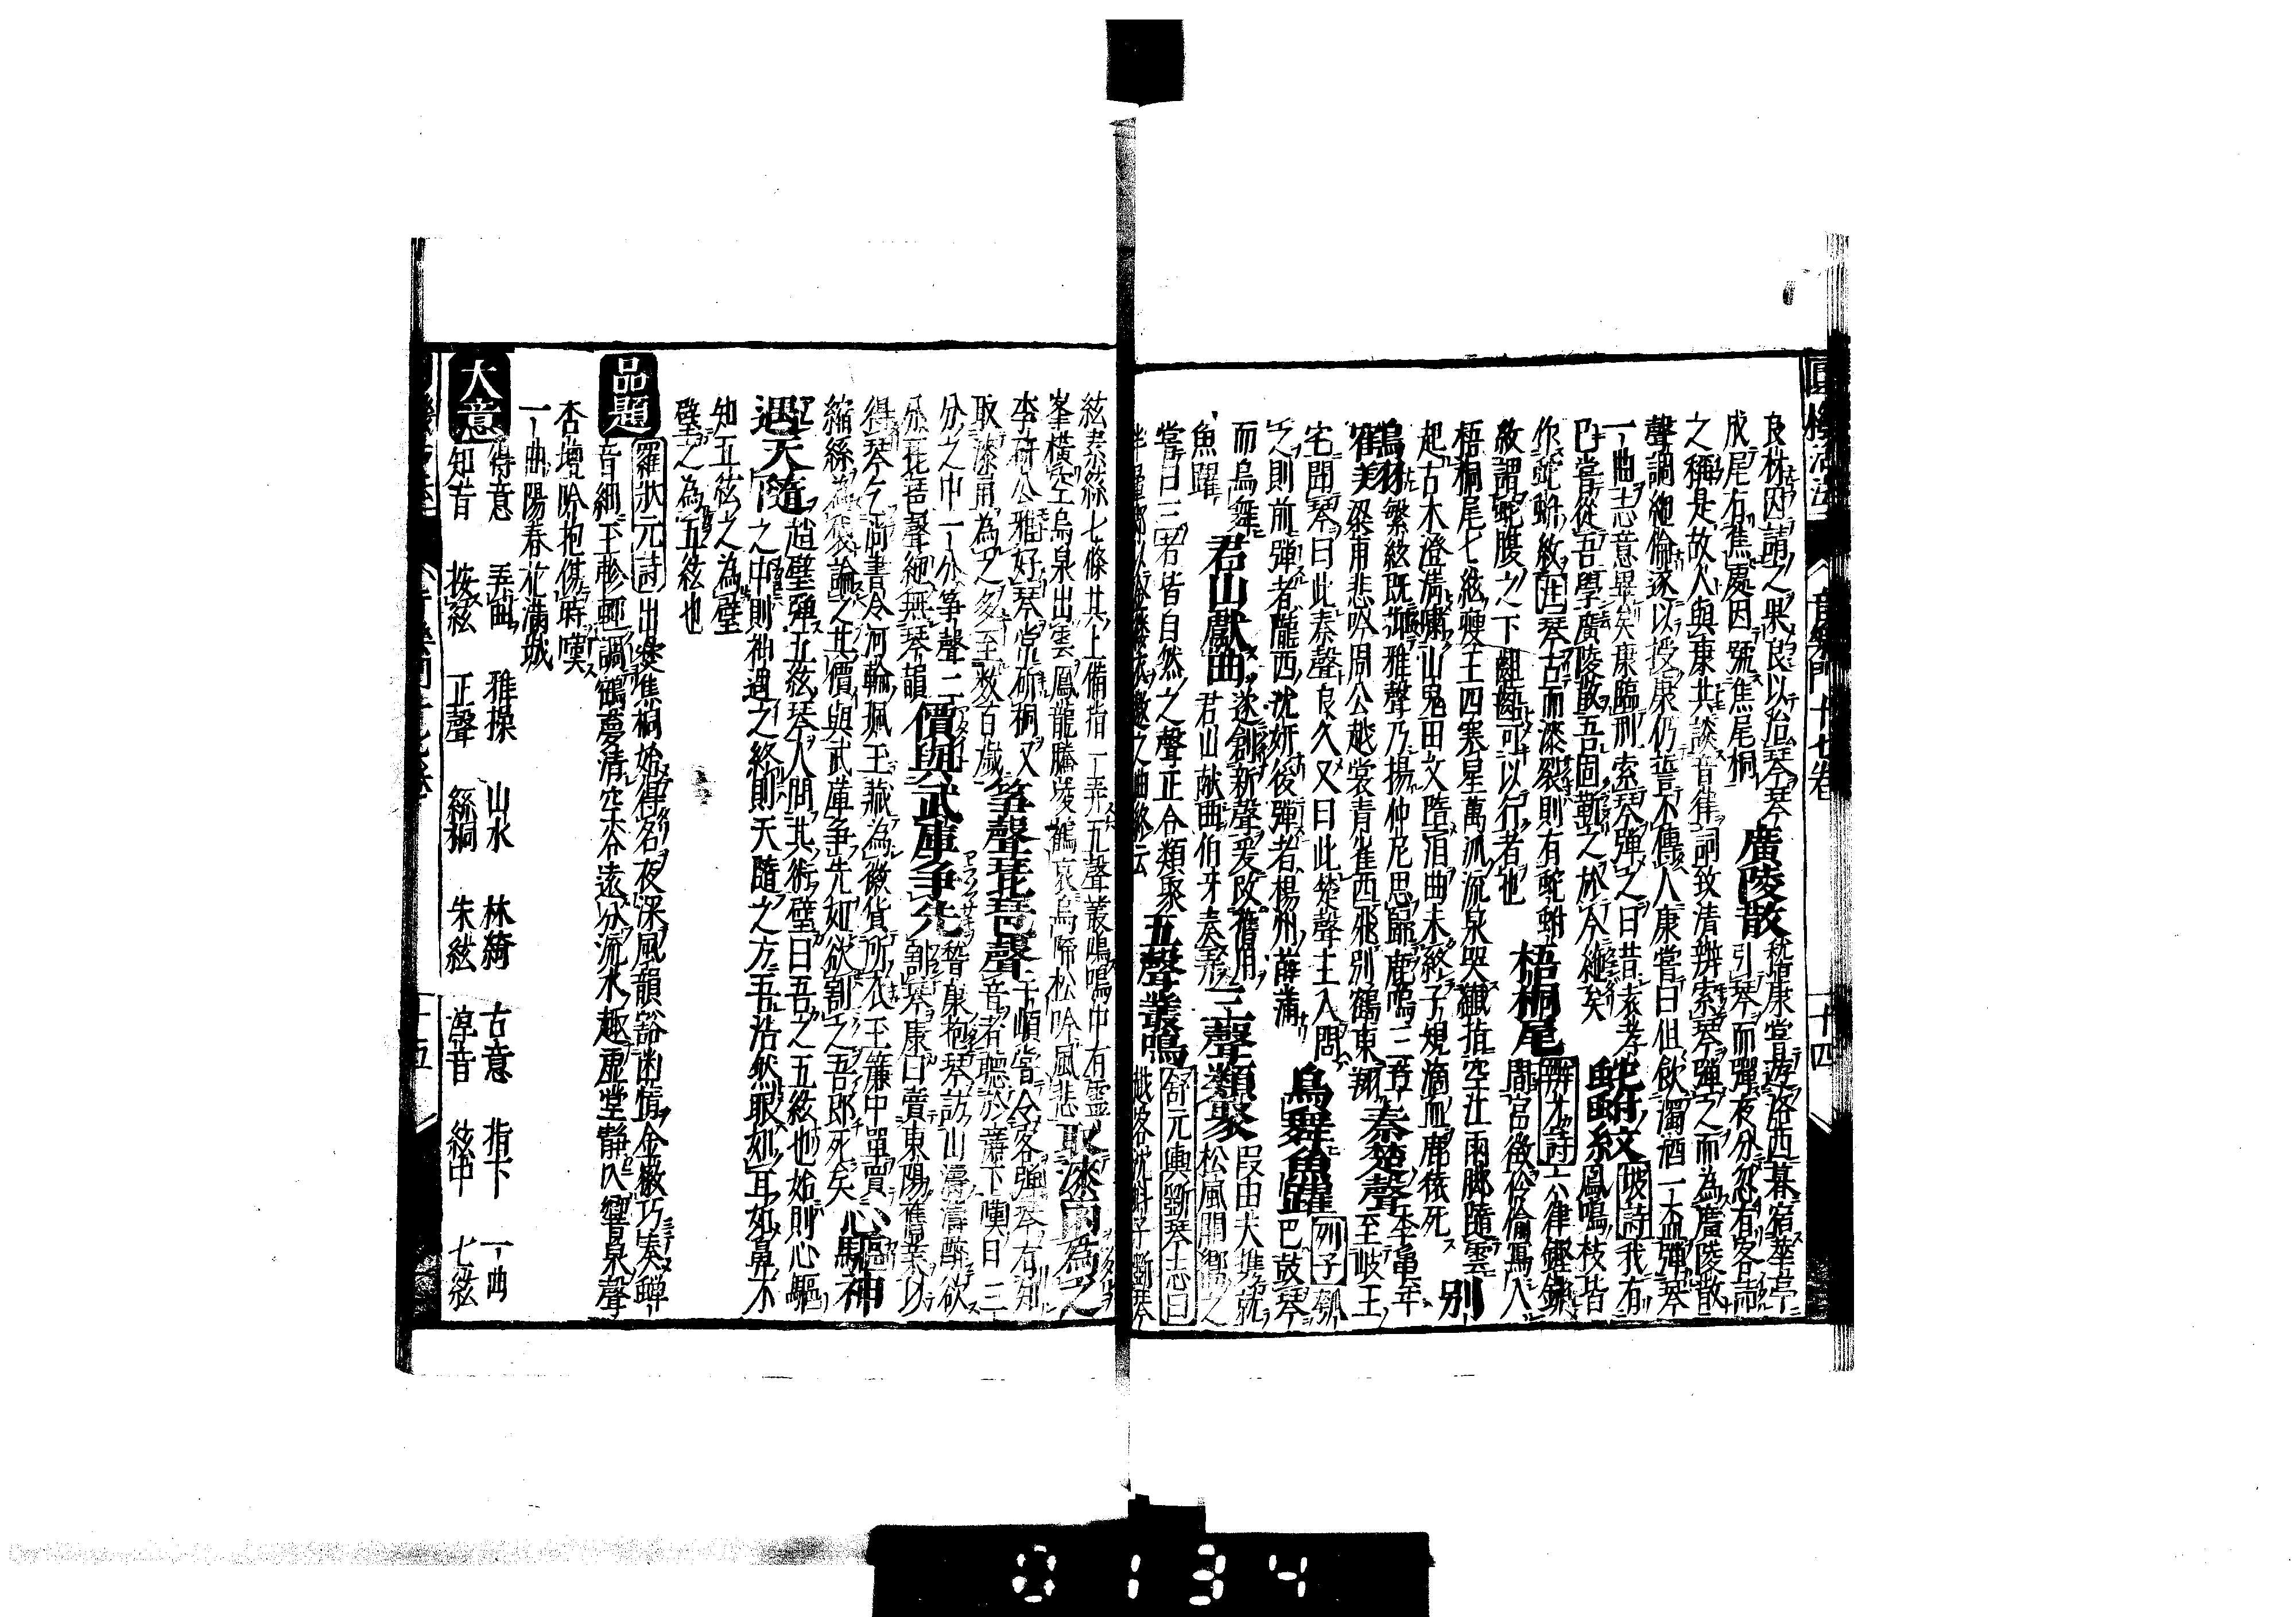 圓機活法 音樂門 十七卷 十四
良材因請之果良以治琴琴
成尾有焦處因號焦尾桐
廣陵散
嵇康嘗遊洛西暮宿華亭
引琴而彈夜分忽有客詣
之稱是故人與康共談音律詞致清辨索琴彈之而為廣陵散
聲調絶倫遂以授康仍誓不傳人康嘗曰但飲濁酒一盃彈琴
一曲志意畢矣康臨刑索琴彈之曰昔袁孝
巳嘗從吾學廣陵散吾固靳之於今絶矣
蛇蚹紋
坡詩我有
鳳鳴枝皆
作蛇蚹紋注琴古而漆裂則有蛇蚹
故謂蛇腹之下齟齬可以行者也
梧桐尾
解才詩六律鏗鏘
間宮徴伶倫寫入
梧桐尾七絃瘦玉四寒星萬派流泉哭纎指空山雨脚隨雲
起古木澄清嘯山鬼田文墮泪曲未終子規滴血鹿依死
別
鶴翔繁絃既抑雅聲乃揚仲尼思歸鹿鳴三章
雀美梁甫悲吟周公越裳青雀西飛別鶴東翔
秦楚聲
李龜年
至岐王
宅聞琴曰此秦聲良久又曰此楚聲主入問
之則前彈者隴西沈妍後彈者楊州薛蒲
烏舞魚躍
列子瓠
巴鼓琴
而烏舞
魚躍
君山獻曲
遂創新聲爰改舊用
君山献曲伯牙奏
三聲類聚
段由夫携
松風聞響之
嘗曰三者皆自然之聲正合類聚
五聲叢鳴
舒元輿斵琴志曰
越客沈
斵琴
絃素絲七條其上備指一弄五聲叢鳴鳴中有靈
峯橫空烏泉出雲鳳龍騰凌鶴哀烏啼松吟風悲
取漆甬為之
李
公雅好琴常斫桐又
取漆甬為之多至數百歳
箏聲琵琶聲
于頔嘗令客彈琴有知
音者聽於簾下嘆曰三
分之中一分箏聲二
分琵琶聲絶無琴韻
價與武庫争先
嵇康抱琴訪山濤濤醉欲
剖琴康曰賣東陽舊業以
得琴乞尚書令河輪珮玉藏為徽貨所衣玉簾中單買
縮絲為裳論之其價與武庫争先如欲剖之吾郎死矣
心驅神
遇天隨
趙璧彈五絃琴人問其術璧曰吾之五絃也始則心驅
之中則神遇之終則天隨之方吾浩然眼如耳如鼻不
知五絃之為璧
璧之為五絃也
品題
羅状元詩出爨焦桐始得名夜深風韻谿幽情金徽巧奏蟬
音細玉軫輕調鶴夢清空谷遠分流水趣虚堂靜聽響泉聲
杏壇吟抱傷時嘆
一曲陽春花滿城
大意
得意 弄曲 雅操 山水 林綺 古意 指下 一曲
知音 按絃 正聲 絲桐 朱絃 淳音 絃中 七絃
十五